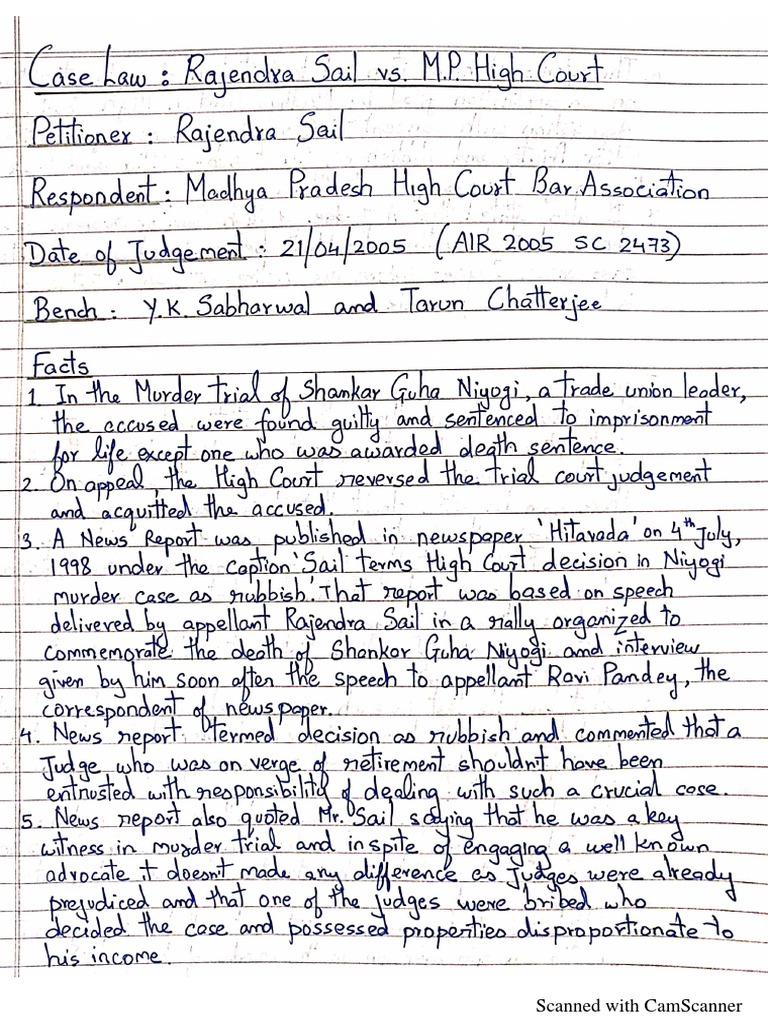 Case Law : Rajendra Sail vs. M.P. High Court
Petitioner : Rajendra Sail
Respondent : Madhya Pradesh High Court Bar Association
Date of Judgement : 21/04/2005 (AIR 2005 SC 2473)
Bench : Y.K. Sabharwal and Tarun Chatterjee
Facts
1. In the Murder trial of Shankar Guha Niyogi, a trade union leader,
the accused were found guilty and sentenced to imprisonment
for life except one who was awarded death sentence.
2. On appeal, the High Court reversed the trial court judgement
and acquitted the accused.
3. A News Report was published in newspaper 'Hitavada' on 4th July,
1998 under the caption 'Sail terms High Court decision in Niyogi
murder case as rubbish'. That report was based on speech
delivered by appellant Rajendra Sail in a rally organized to
commemorate the death of Shankar Guha Niyogi and interview
given by him soon after the speech to appellant Ravi Pandey, the
correspondent of newspaper.
4. News report termed decision as rubbish and commented that a
Judge who was on verge of retirement shouldn't have been
entrusted with responsibility of dealing with such a crucial case.
5. News report also quoted Mr. Sail saying that he was a key
witness in murder trial and inspite of engaging a well known
advocate it doesn't made any difference as Judges were already
prejudiced and that one of the judges were bribed who
decided the case and possessed properties disproportionate to
his income.
Scanned with CamScanner